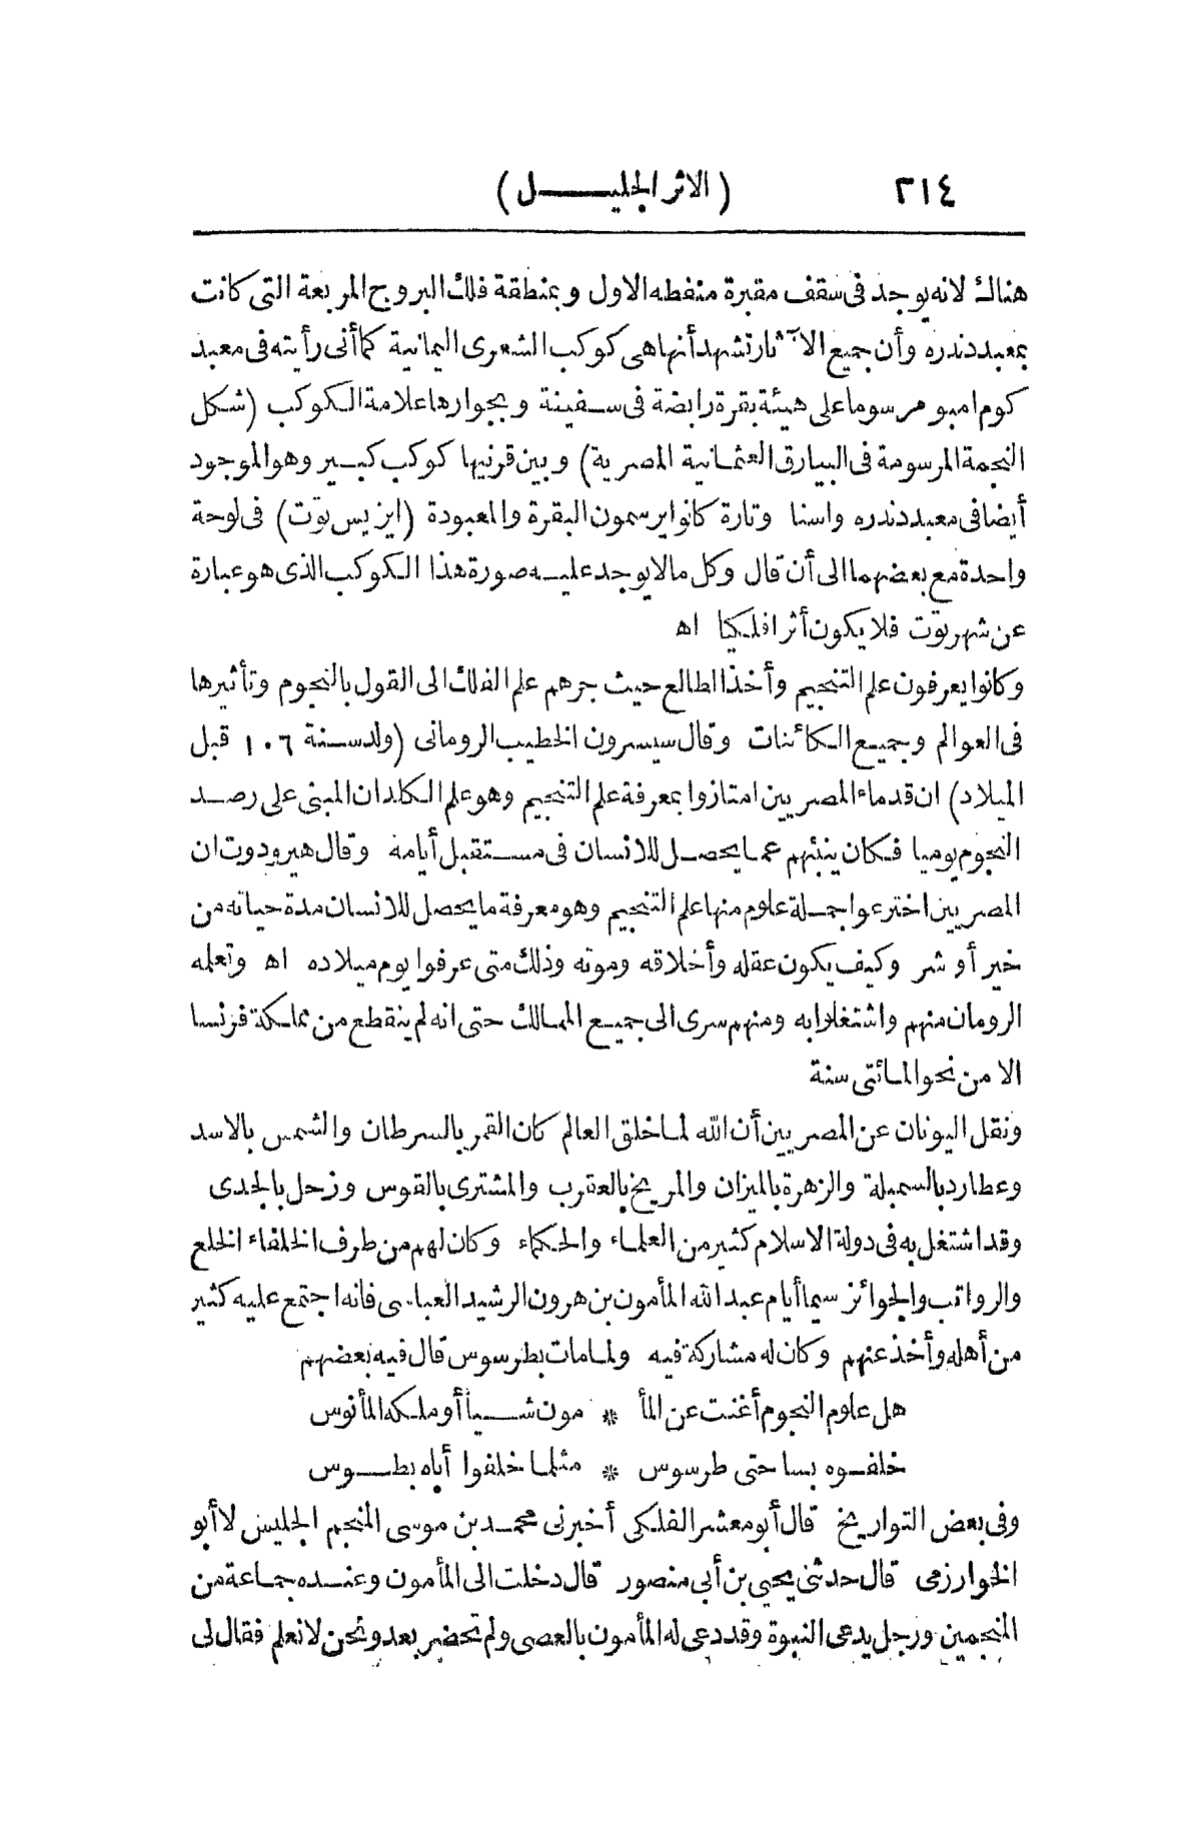 ٢١٤ (الاثر الجليـــــل)
هناك لانه يوجد فى سقف مقبرة منفطه الاول وبمنطقة فلك البروج المربعة التى كانت
بمعبد دندره وأن جميع الآثار تشهد أنها هى كوكب الشعرى اليمانية كما أنى رأيته فى معبد
كوم امبو مرسوما على هيئة بقرة رابضة فى سفينة وبجوارها علامة الكوكب (شكل
النجمة المرسومة فى البيارق العثمانية المصرية) وبين قرنيها كوكب كبير وهو الموجود
أيضا فى معبد دندره واسنا وتارة كانوا يرسمون البقرة والمعبودة (ايزيس توت) فى لوحة
واحدة مع بعضهما الى أن قال وكل مالا يوجد عليه صورة هذا الكوكب الذى هو عبارة
عن شهر توت فلا يكون أثرا فلكيا اه
وكانوا يعرفون علم التنجيم وأخذ الطالع حيث جرهم علم الفلك الى القول بالنجوم وتأثيرها
فى العوالم وجميع الكائنات وقال سيسرون الخطيب الرومانى (ولد سنة ١٠٦ قبل
الميلاد) ان قدماء المصريين امتازوا بمعرفة علم التنجيم وهو علم الكلدان المبنى على رصد
النجوم يوميا فكان ينبئهم عما يحصل للانسان فى مستقبل أيامه وقال هيرودوت ان
المصريين اخترعوا جملة علوم منها علم التنجيم وهو معرفة ما يحصل للانسان مدة حياته من
خير أو شر وكيف يكون عقله وأخلاقه وموته وذلك متى عرفوا يوم ميلاده اه وتعلمه
الرومان منهم واشتغلوا به ومنهم سرى الى جميع الممالك حتى انه لم ينقطع من مملكة فرنسا
الا من نحو المائتى سنة
ونقل اليونان عن المصريين أن الله لما خلق العالم كان القمر بالسرطان والشمس بالاسد
وعطارد بالسمبلة والزهرة بالميزان والمريخ بالعقرب والمشترى بالقوس وزحل بالجدى
وقد اشتغل به فى دولة الاسلام كثير من العلماء والحكماء وكان لهم من طرف الخلفاء الخلع
والرواتب والجوائز سيما أيام عبد الله المأمون بن هرون الرشيد العباسى فانه اجتمع عليه كثير
من أهله وأخذ عنهم وكان له مشاركة فيه ولما مات بطرسوس قال فيه بعضهم
هل علوم النجوم أغنت عن المأ * مون شيأ أو ملكه المأنوس
خلفوه بساحتى طرسوس * مثلما خلفوا أباه بطوس
وفى بعض التواريخ قال أبو معشر الفلكى أخبرنى محمد بن موسى المنجم الجليس لا أبو
الخوارزمى قال حدثنى يحيى بن أبى منصور قال دخلت الى المأمون وعنده جماعة من
المنجمين ورجل يدعى النبوة وقد دعى له المأمون بالعصى ولم تحضر بعد ونحن لا نعلم فقال لى